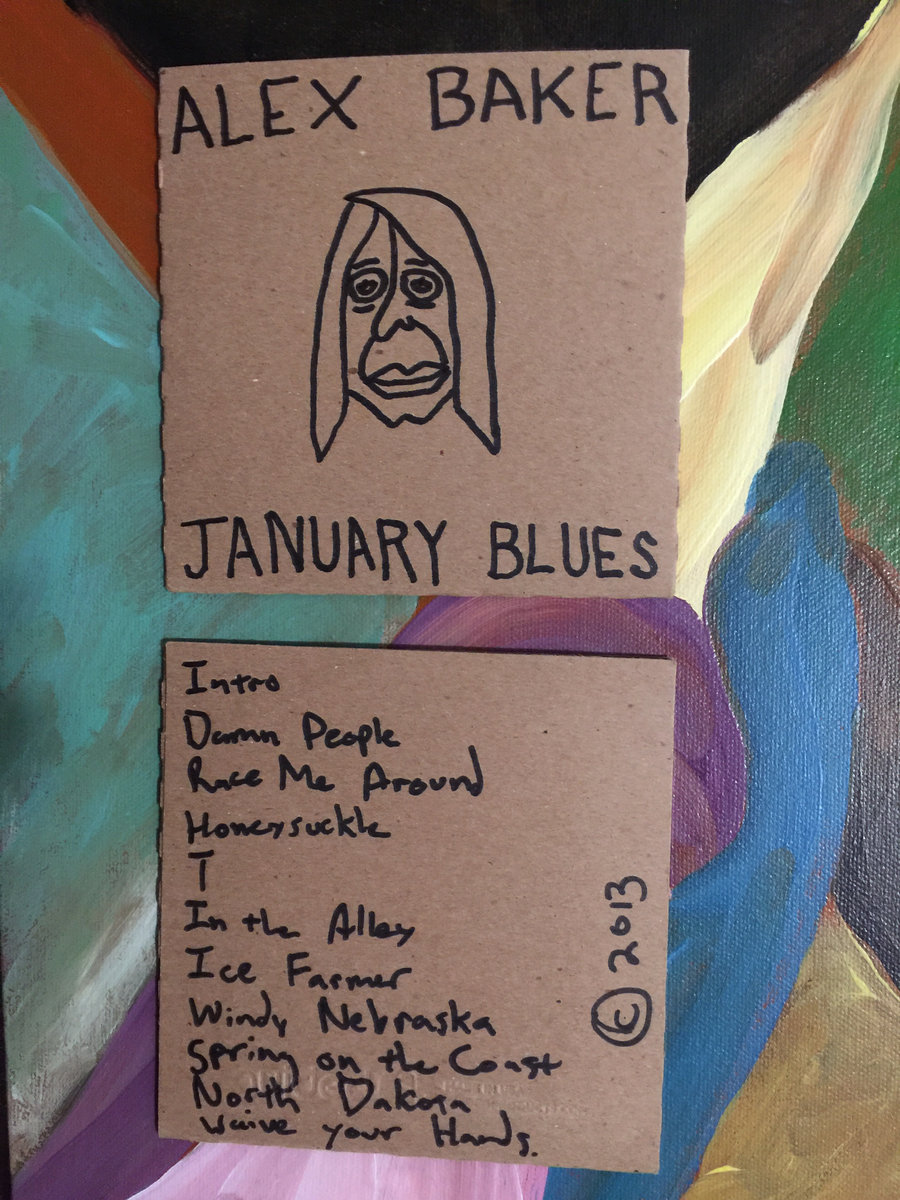 ALEX BAKER
JANUARY BLUES
Intro
Damn People
Race Me Around
Honeysuckle
T
In the Alley
Ice Farmer
Windy Nebraska
Spring on the Coast
North Dakota
Waive your Hands.
© 2013